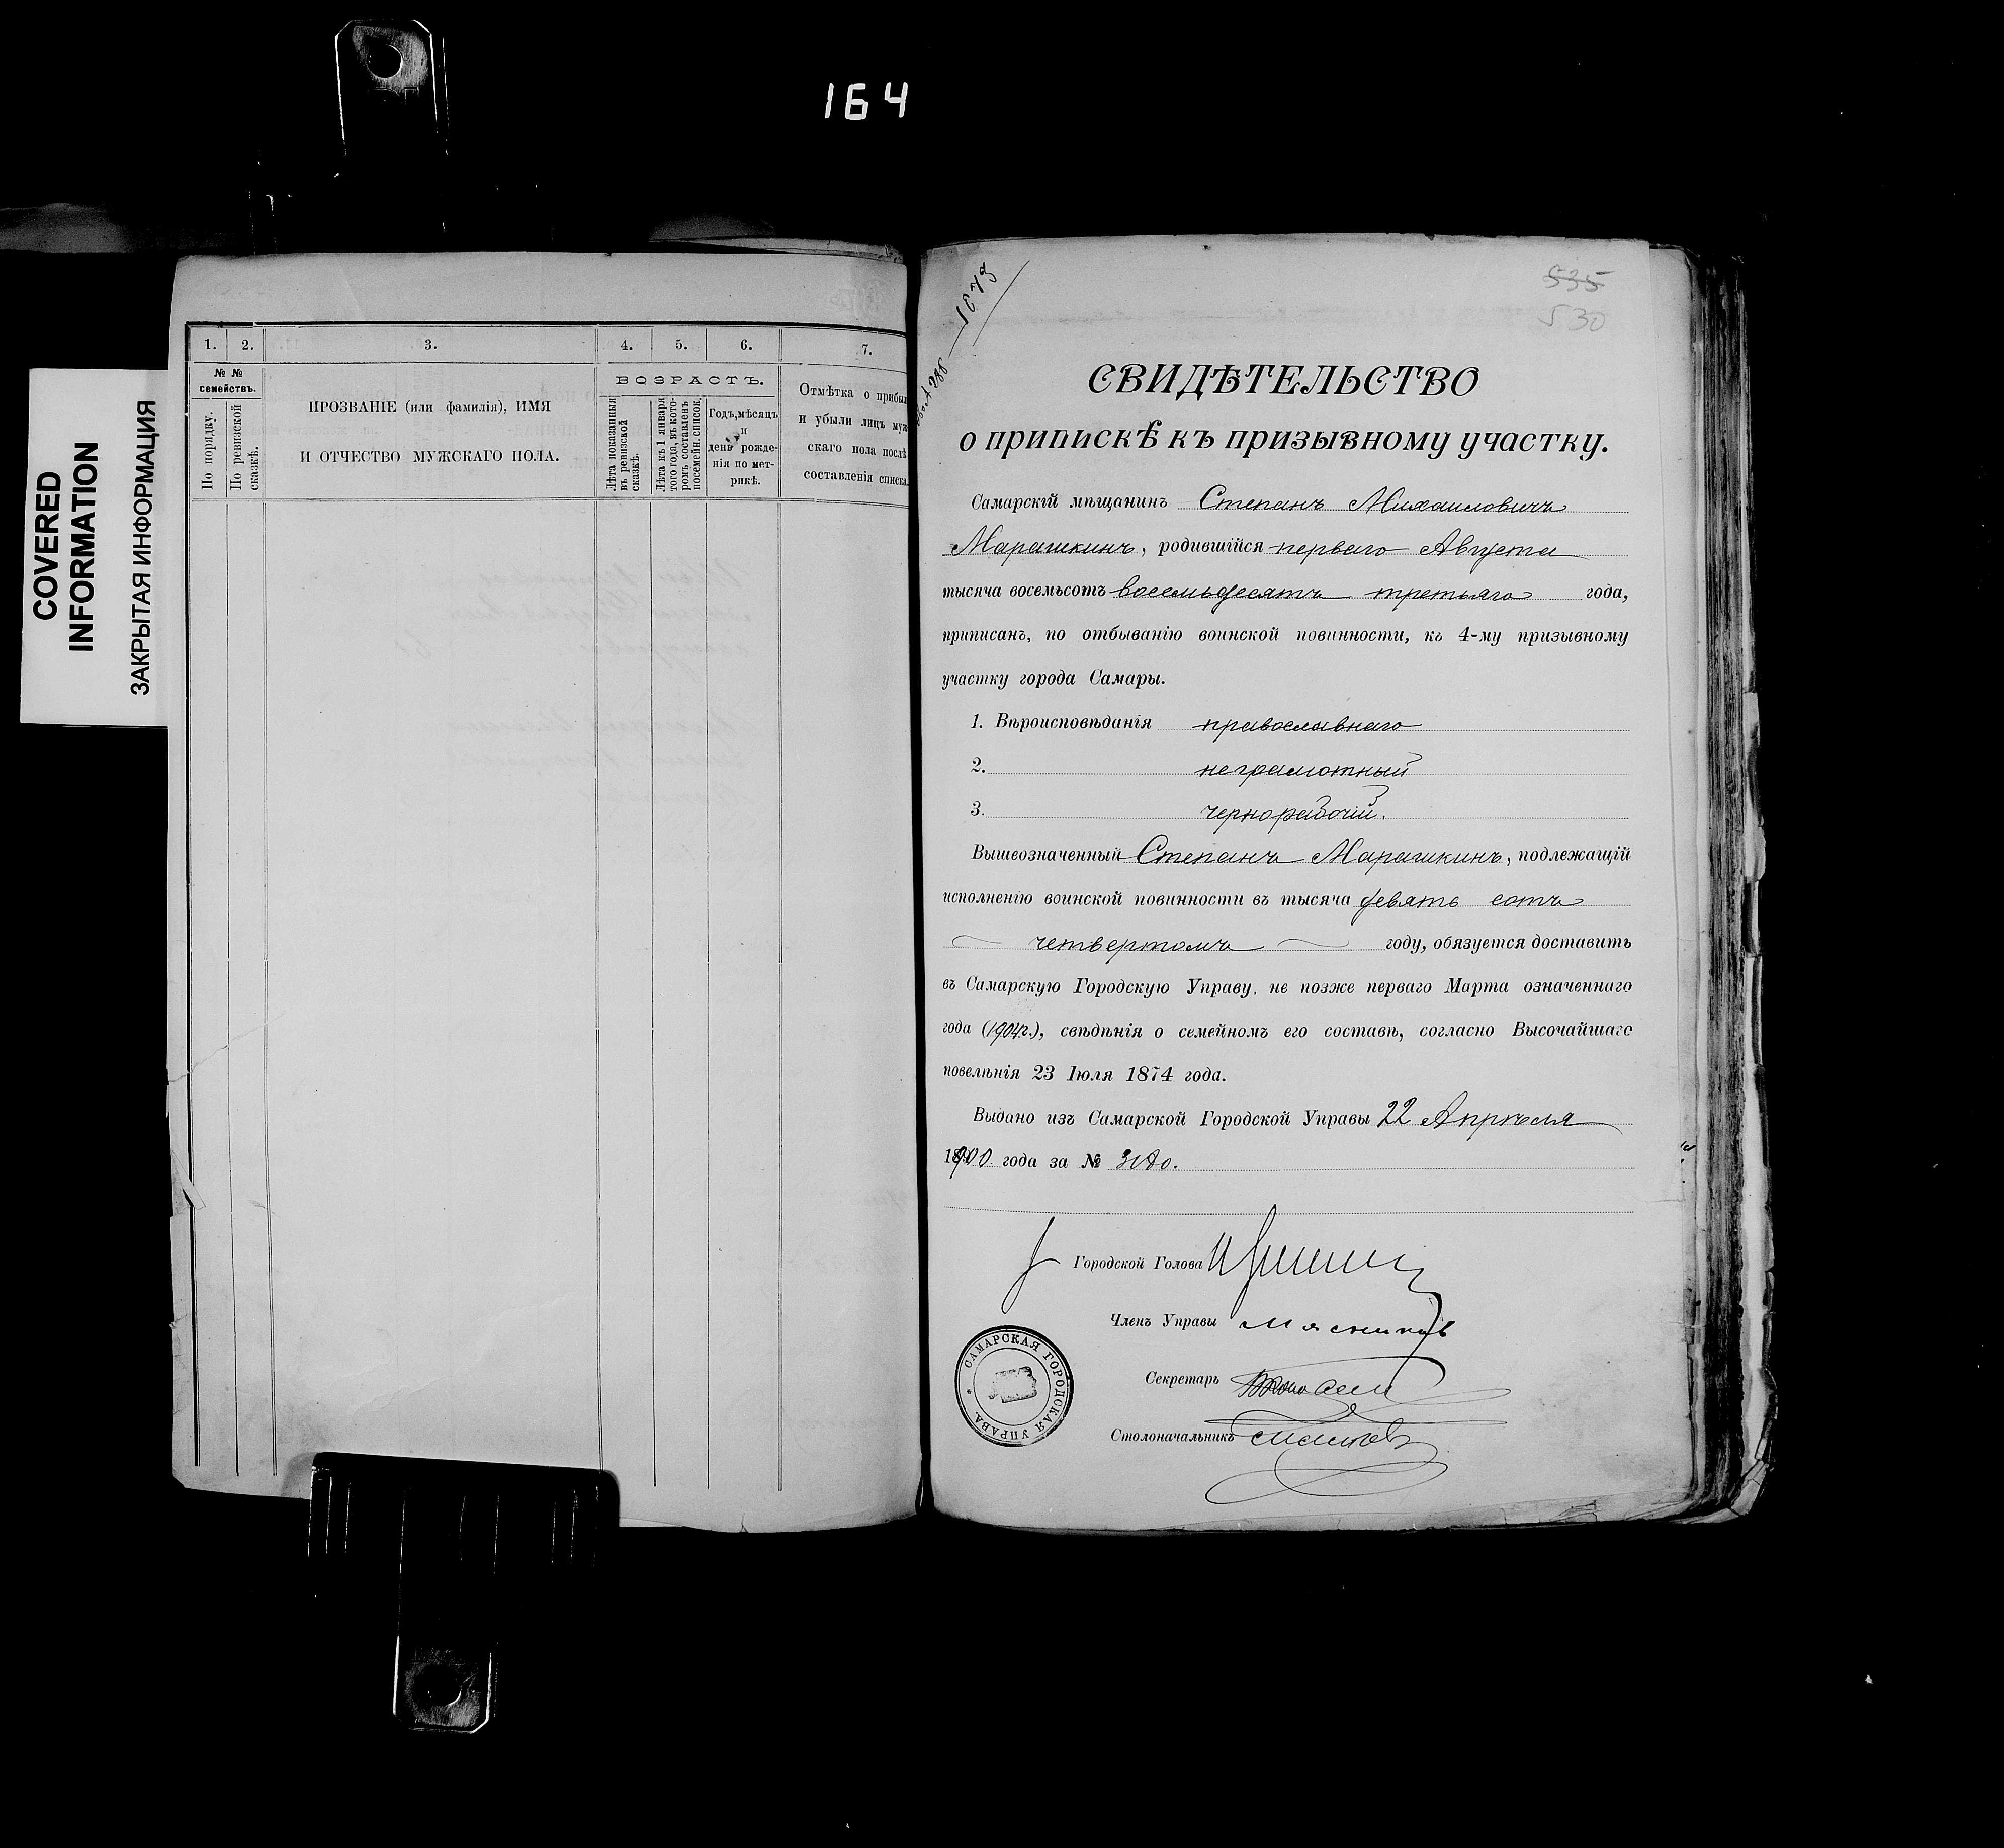 164
COVERED
INFORMATION
ЗАКРЫТАЯ ИНФОРМАЦИЯ
1. 2. 3. 4. 5. 6. 7.
№ №
семействъ.
По порядку.
По ревизской
сказкѣ.
ПРОЗВАНІЕ (или фамилія), ИМЯ
И ОТЧЕСТВО МУЖСКАГО ПОЛА.
ВОЗРАСТЪ.
Лѣта показанныя
въ ревизской
сказкѣ.
Лѣта къ 1 января
того года, въ кото-
ромъ составленъ
посемейн. список.
Годъ, мѣсяцъ
и
день рожде-
нія по мет-
рикѣ.
Отмѣтка о прибы
и убыли лицъ муж
скаго пола послѣ
составленія списка.
535
530
СВИДѢТЕЛЬСТВО
о припискѣ къ призывному участку.
Самарскій мѣщанинъ Степанъ Михаиловичъ
Марашкинъ, родившійся перваго Августа
тысяча восемьсотъ восемьдесятъ третьяго года,
приписанъ, по отбыванію воинской повинности, къ 4-му призывному
участку города Самары.
1. Вѣроисповѣданія православнаго
2. неграмотный
3. чернорабочій.
Вышеозначенный Степанъ Марашкинъ, подлежащій
исполненію воинской повинности въ тысяча девять сотъ
четвертомъ году, обязуется доставить
въ Самарскую Городскую Управу, не позже перваго Марта означеннаго
года (1904г.), свѣдѣнія о семейномъ его составѣ, согласно Высочайшаго
повелѣнія 23 Іюля 1874 года.
Выдано изъ Самарской Городской Управы 22 Апрѣля
1900 года за №
Городской Голова
Членъ Управы Мясников
Секретарь
Столоначальникъ
САМАРСКАЯ ГОРОДСКАЯ УПРАВА.